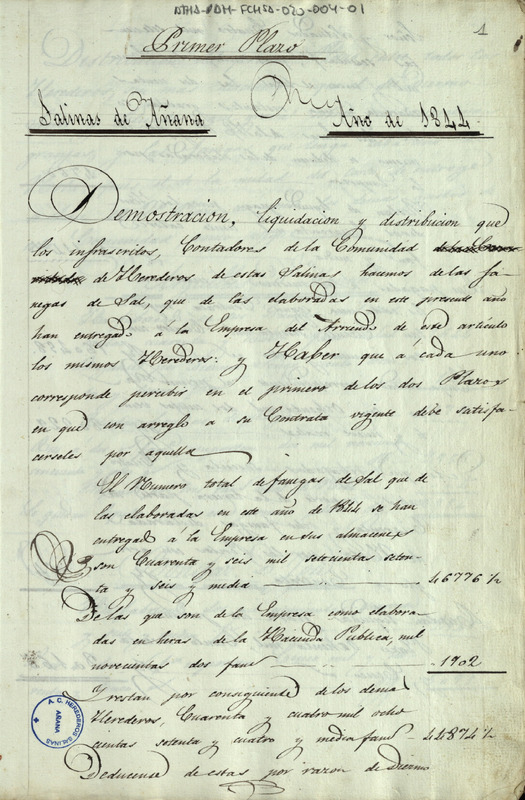 ATHA-DAH-FCHSA-020-004-01
1
Primer Plazo
Salinas de Añana
Año de 1844
Demostracion, liquidacion y distribucion que
los infrascritos, Contadores de la Comunidad
de Herederos de estas Salinas hacemos de las fa-
negas de Sal, que de las elaboradas en este presente año
han entregado á la Empresa del Arriendo de este artículo
los mismos Herederos: y Haber que á cada uno
corresponde percibir en el primero de los dos Plazos
en que con arreglo a su Contrata vigente debe satisfa-
cerseles por aquella
El Numero total de fanegas de Sal que de
las elaboradas en este año de 1844 se han
entregado á la Empresa en sus almacenes
son Cuarenta y seis mil setecientas seten-
ta y seis y media 46776 1/2
De las que son de la Empresa como elabora-
das en heras de la Hacienda Publica, mil
novecientas dos fans 1902
Y restan por consiguiente de los demas
Herederos, Cuarenta y cuatro mil ocho
cientas setenta y cuatro y media fans 44874 1/2
Deducense de estas por razon de Diezmo
A. C. HEREDEROS SALINAS
AÑANA